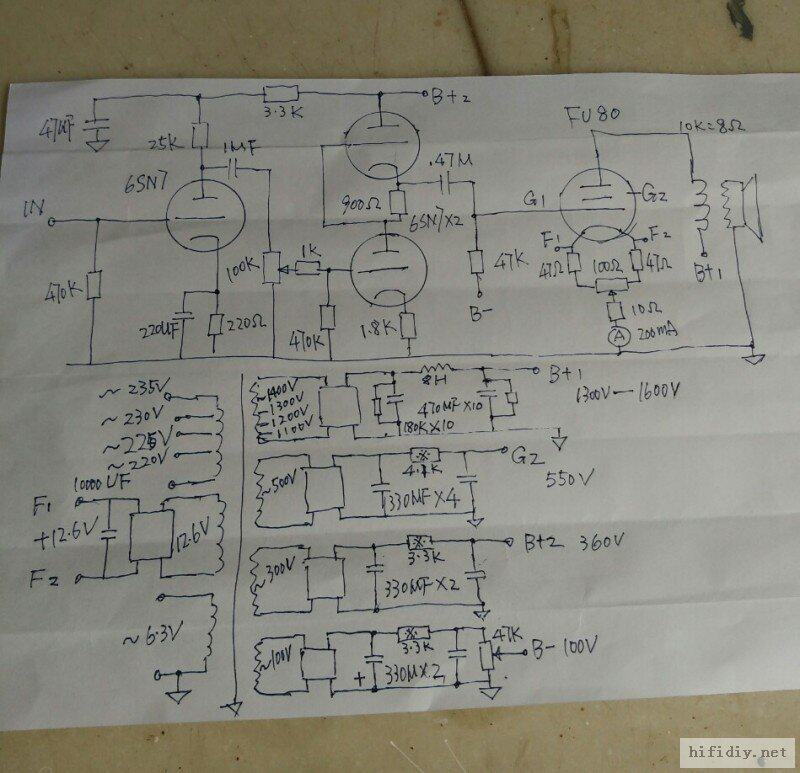 47UF
3.3K
B+2
FU80
25K
1MF
10K=8Ω
6SN7
.47M
IN
900Ω
6SN7X2
G1
G2
F1
F2
470K
100K
1K
47K
47Ω
100Ω
47Ω
B+1
B-
220UF
220Ω
470K
1.8K
10Ω
A
200mA
~235V
~230V
~225V
~220V
~1400V
1300V
1200V
1100V
8H
B+1
1300V—1600V
470MFX10
180KX10
~500V
4.7K
G2
550V
330MFX4
10000UF
F1
+12.6V
12.6V
F2
~300V
3.3K
B+2 360V
330MFX2
~6.3V
~100V
3.3K
47K
B-100V
+
330MX2
hifidiy.net